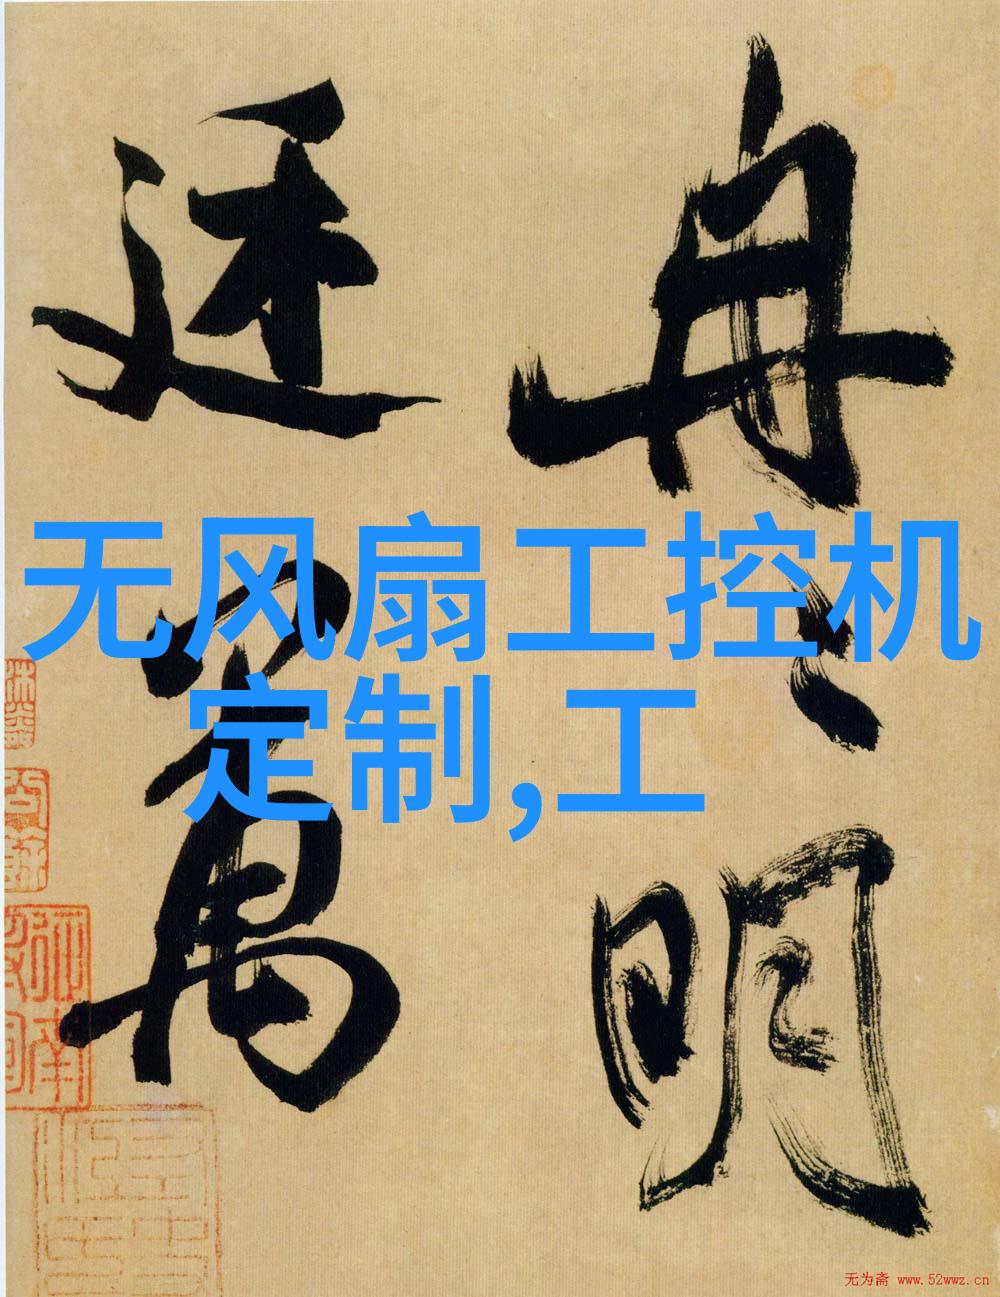 无风扇工控机
定制,工
冉々明
廷萬
无为斋 www.52wwz.cn